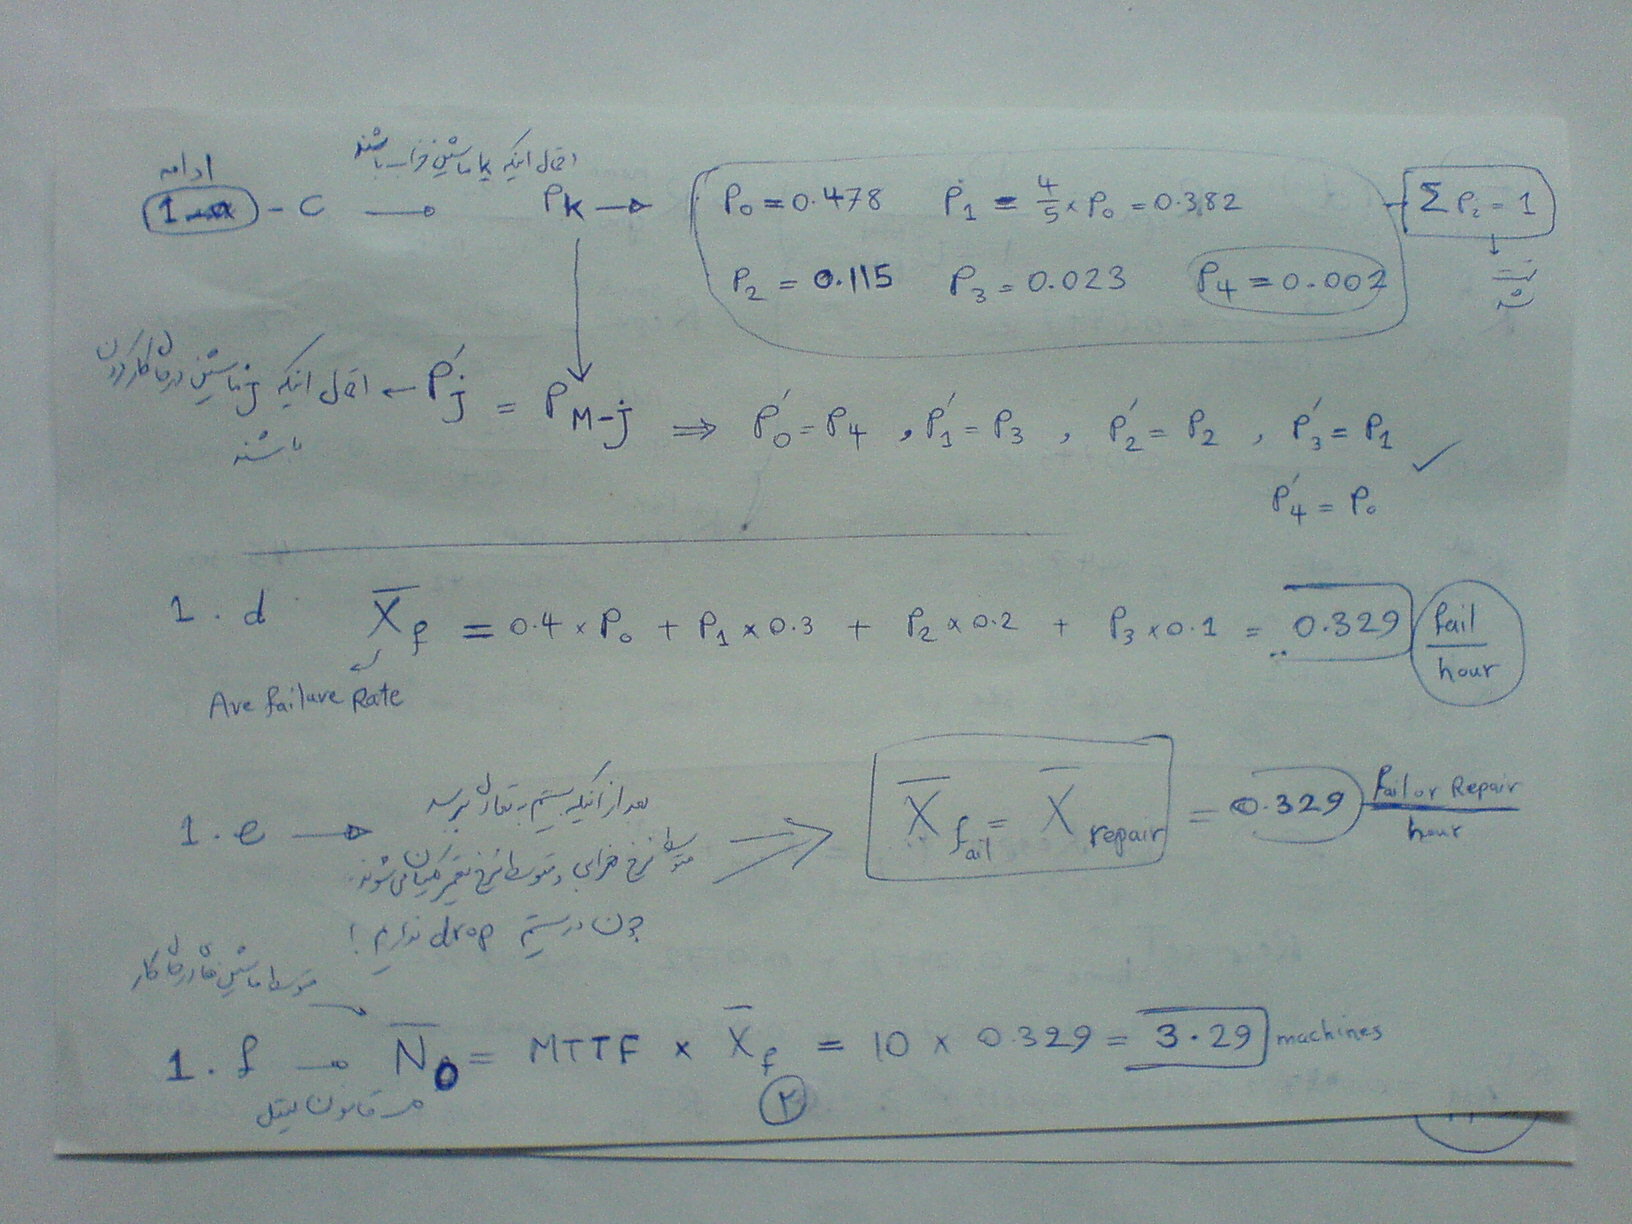 ادامه
1-a - c → احتمال اینکه k ماشین خراب باشند
P_k → P_0 = 0.478 P_1 = 4/5 × P_0 = 0.382 Σ P_i = 1
P_2 = 0.115 P_3 = 0.023 P_4 = 0.002
احتمال اینکه j ماشین در حال کار کردن باشند ← P'_j = P_{M-j} ⇒ P'_0 = P_4 , P'_1 = P_3 , P'_2 = P_2 , P'_3 = P_1 ✓
P'_4 = P_0
1. d X̄_f = 0.4 × P_0 + P_1 × 0.3 + P_2 × 0.2 + P_3 × 0.1 = 0.329 fail/hour
Ave failure Rate
1. e → بعد از اینکه سیستم به تعادل برسد
متوسط نرخ خرابی و متوسط نرخ تعمیر یکسان می شوند.
چون در سیستم drop نداریم!
⇒ X̄_fail = X̄_repair = 0.329 fail or Repair/hour
متوسط ماشین های در حال کار
1. f → N̄_0 = MTTF × X̄_f = 10 × 0.329 = 3.29 machines
قانون لیتل
۲